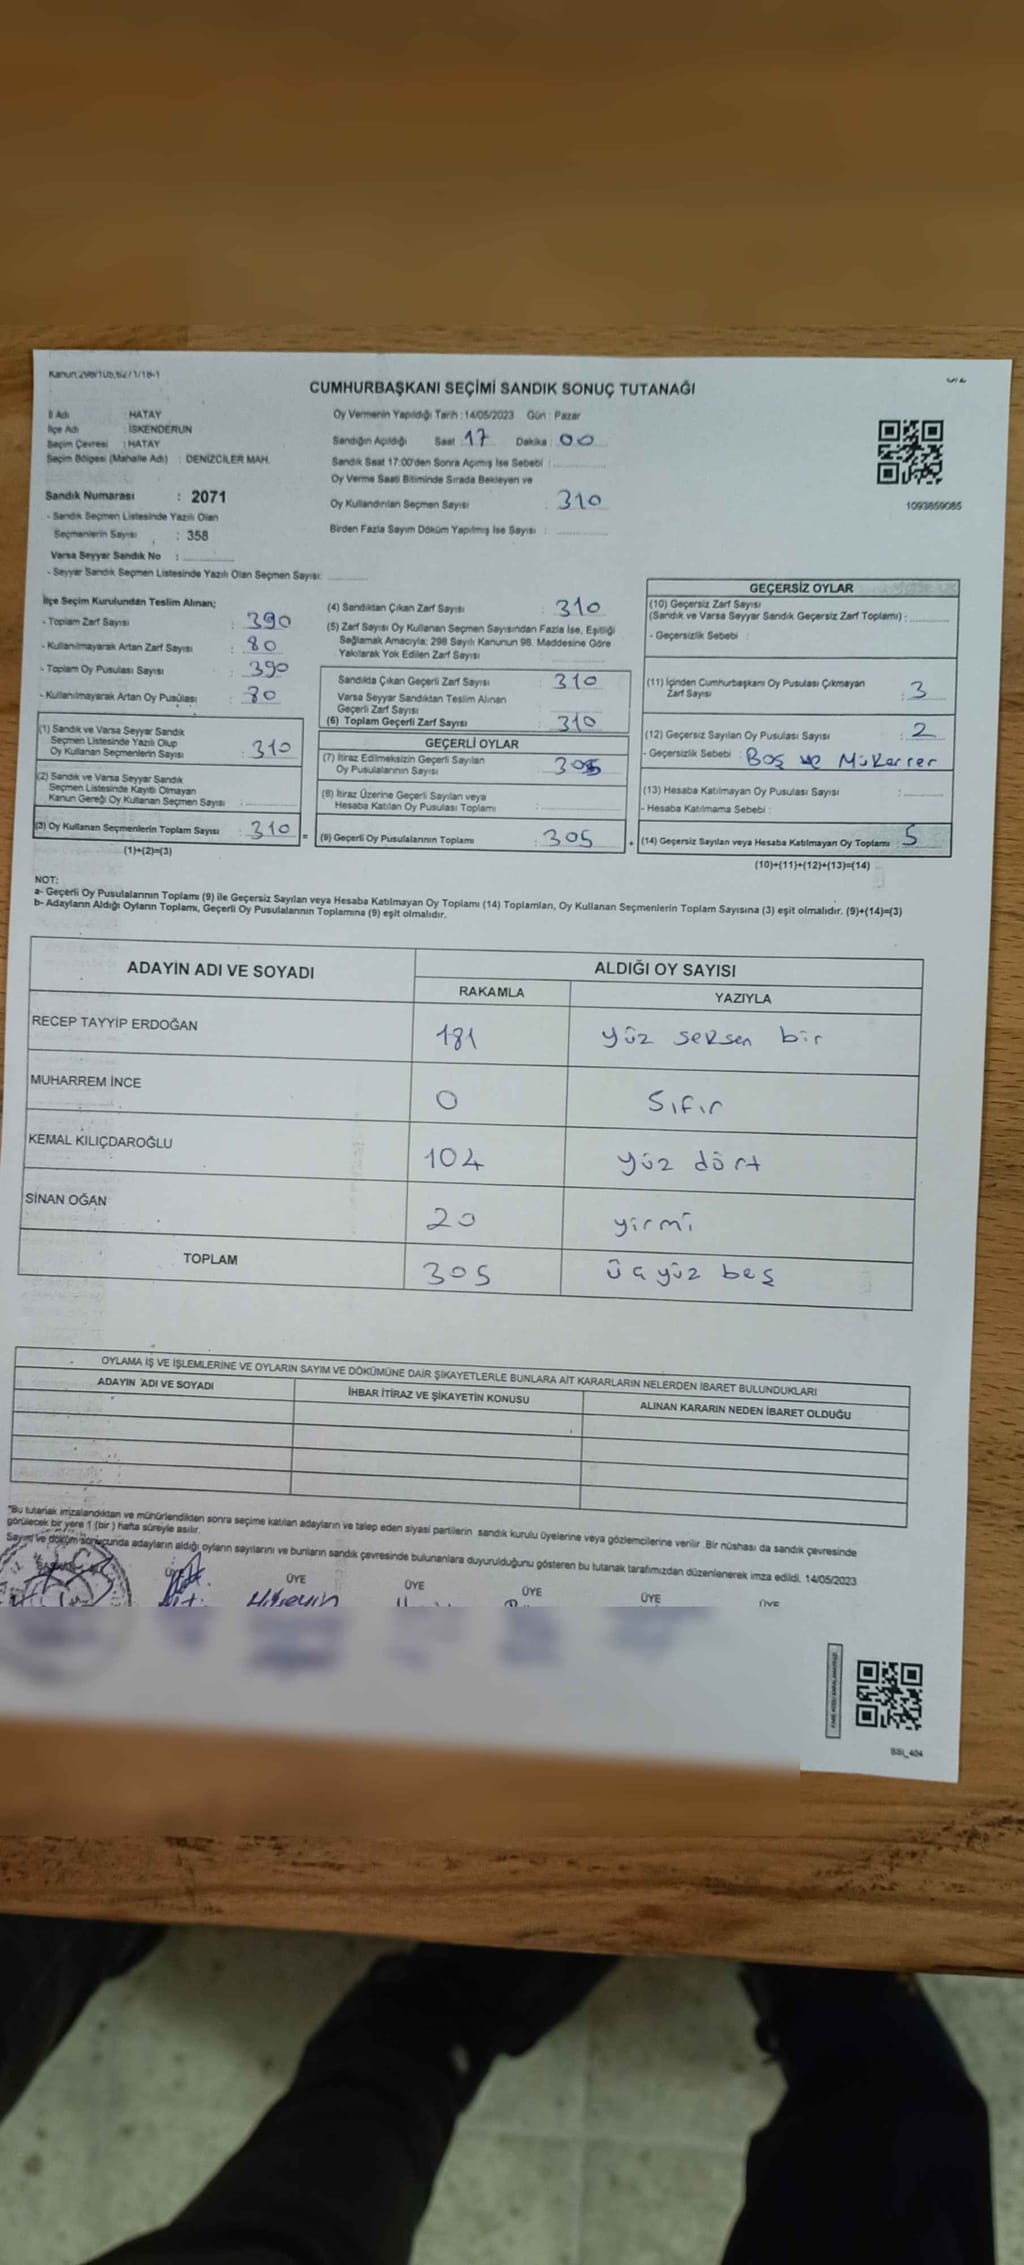 Kanun:298/105,6271/18-1
CUMHURBAŞKANI SEÇİMİ SANDIK SONUÇ TUTANAĞI
İl Adı HATAY
İlçe Adı İSKENDERUN
Seçim Çevresi : HATAY
Seçim Bölgesi (Mahalle Adı) : DENİZCİLER MAH.
Sandık Numarası : 2071
- Sandık Seçmen Listesinde Yazılı Olan
Seçmenlerin Sayısı : 358
Varsa Seyyar Sandık No :
- Seyyar Sandık Seçmen Listesinde Yazılı Olan Seçmen Sayısı:
Oy Vermenin Yapıldığı Tarih :14/05/2023 Gün : Pazar
Sandığın Açıldığı Saat 17 Dakika : 00
Sandık Saat 17:00'den Sonra Açımış İse Sebebi :
Oy Verme Saati Bitiminde Sırada Bekleyen ve
Oy Kullandırılan Seçmen Sayısı 310
Birden Fazla Sayım Döküm Yapılmış İse Sayısı :
1093859085
İlçe Seçim Kurulundan Teslim Alınan;
- Toplam Zarf Sayısı : 390
- Kullanılmayarak Artan Zarf Sayısı : 80
- Toplam Oy Pusulası Sayısı : 390
- Kullanılmayarak Artan Oy Pusulası : 80
(1) Sandık ve Varsa Seyyar Sandık
Seçmen Listesinde Yazılı Olup
Oy Kullanan Seçmenlerin Sayısı : 310
(2) Sandık ve Varsa Seyyar Sandık
Seçmen Listesinde Kayıtlı Olmayan
Kanun Gereği Oy Kullanan Seçmen Sayısı :
(3) Oy Kullanan Seçmenlerin Toplam Sayısı : 310 =
(1)+(2)=(3)
(4) Sandıktan Çıkan Zarf Sayısı : 310
(5) Zarf Sayısı Oy Kullanan Seçmen Sayısından Fazla İse, Eşitliği
Sağlamak Amacıyla; 298 Sayılı Kanunun 98. Maddesine Göre
Yakılarak Yok Edilen Zarf Sayısı :
Sandıkta Çıkan Geçerli Zarf Sayısı : 310
Varsa Seyyar Sandıktan Teslim Alınan
Geçerli Zarf Sayısı
(6) Toplam Geçerli Zarf Sayısı : 310
GEÇERLİ OYLAR
(7) İtiraz Edilmeksizin Geçerli Sayılan
Oy Pusulalarının Sayısı : 305
(8) İtiraz Üzerine Geçerli Sayılan veya
Hesaba Katılan Oy Pusulası Toplamı :
(9) Geçerli Oy Pusulalarının Toplamı : 305 +
GEÇERSİZ OYLAR
(10) Geçersiz Zarf Sayısı
(Sandık ve Varsa Seyyar Sandık Geçersiz Zarf Toplamı) :
- Geçersizlik Sebebi :
(11) İçinden Cumhurbaşkanı Oy Pusulası Çıkmayan
Zarf Sayısı : 3
(12) Geçersiz Sayılan Oy Pusulası Sayısı : 2
- Geçersizlik Sebebi : Boş ve Mükerrer
(13) Hesaba Katılmayan Oy Pusulası Sayısı :
- Hesaba Katılmama Sebebi :
(14) Geçersiz Sayılan veya Hesaba Katılmayan Oy Toplamı : 5
(10)+(11)+(12)+(13)=(14)
NOT:
a- Geçerli Oy Pusulalarının Toplamı (9) ile Geçersiz Sayılan veya Hesaba Katılmayan Oy Toplamı (14) Toplamları, Oy Kullanan Seçmenlerin Toplam Sayısına (3) eşit olmalıdır. (9)+(14)=(3)
b- Adayların Aldığı Oyların Toplamı, Geçerli Oy Pusulalarının Toplamına (9) eşit olmalıdır.
ADAYIN ADI VE SOYADI ALDIĞI OY SAYISI
RAKAMLA YAZIYLA
RECEP TAYYİP ERDOĞAN 181 yüz seksen bir
MUHARREM İNCE 0 Sıfır
KEMAL KILIÇDAROĞLU 104 yüz dört
SİNAN OĞAN 20 yirmi
TOPLAM 305 üç yüz beş
OYLAMA İŞ VE İŞLEMLERİNE VE OYLARIN SAYIM VE DÖKÜMÜNE DAİR ŞİKAYETLERLE BUNLARA AİT KARARLARIN NELERDEN İBARET BULUNDUKLARI
ADAYIN ADI VE SOYADI İHBAR İTİRAZ VE ŞİKAYETİN KONUSU ALINAN KARARIN NEDEN İBARET OLDUĞU
"Bu tutanak imzalandıktan ve mühürlendikten sonra seçime katılan adayların ve talep eden siyasi partilerin sandık kurulu üyelerine veya gözlemcilerine verilir. Bir nüshası da sandık çevresinde
görülecek bir yere 1 (bir) hafta süreyle asılır.
Sayım ve döküm sonucunda adayların aldığı oyların sayılarını ve bunların sandık çevresinde bulunanlara duyurulduğunu gösteren bu tutanak tarafımızdan düzenlenerek imza edildi. 14/05/2023
BAŞKAN ÜYE ÜYE ÜYE ÜYE ÜYE ÜYE
Hüseyin
BSI_404